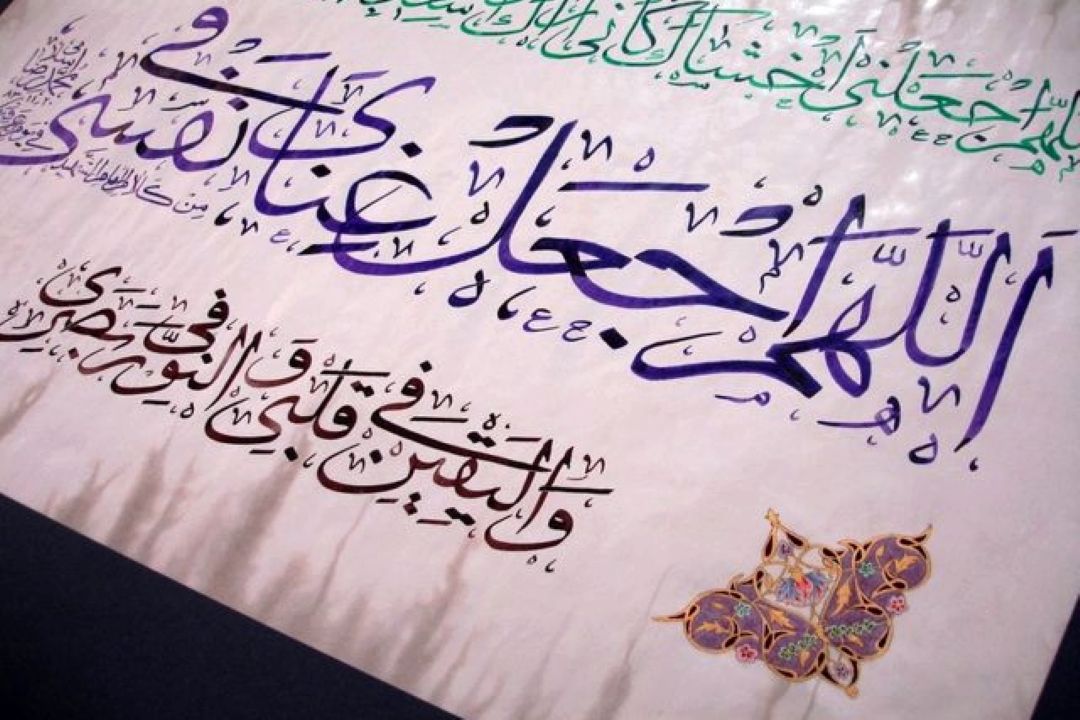 اللهم اجعلنى اخشاك كانى اراك
اللهم اجعل غناى فى نفسى
من كلام الامام الشهيد
واليقين فى قلبى و النور فى بصرى